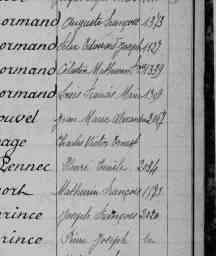 ormand Auguste François 1373
ormand Edouard Joseph 1127
ormand Célestin Mathurin 1339
ormand Louis François Marie
ouvel Jean Marie Alexandre
age Charles Victor Ernest
Pennec Pierre Emile 2084
ort Mathurin François 1173
rince Joseph François 2020
rince Pierre Joseph